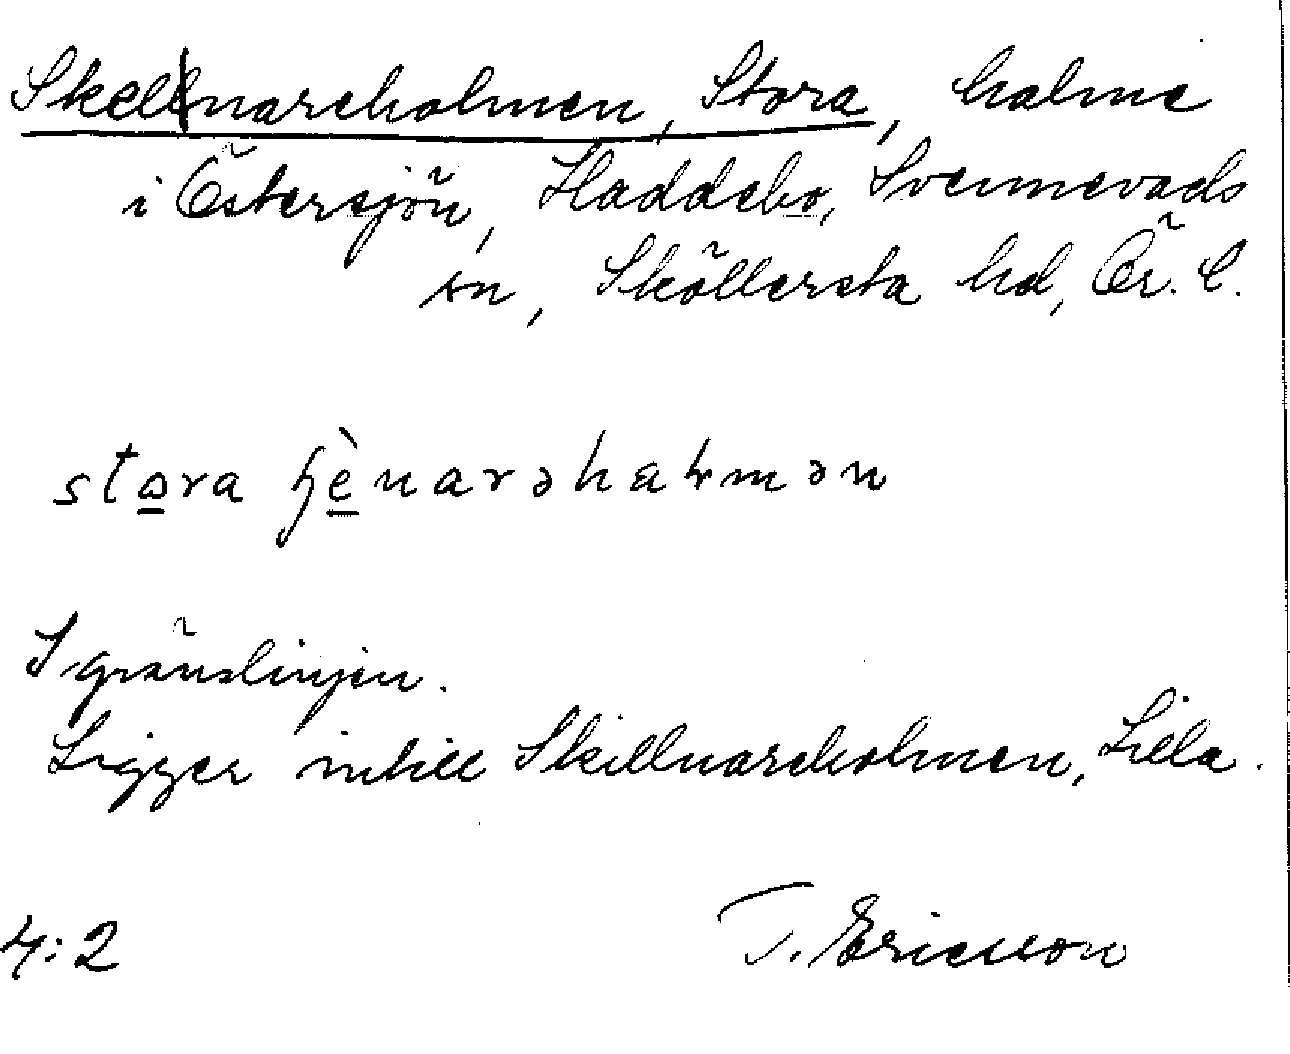 Skellnareholmen, Stora, holme
i Östersjön, Haddebo, Svennevads
sn, Sköllersta hd, Ör. l.
stora
I gränslinjen.
Ligger intill Skillnareholmen, Lilla.
4:2
T. Ericsson